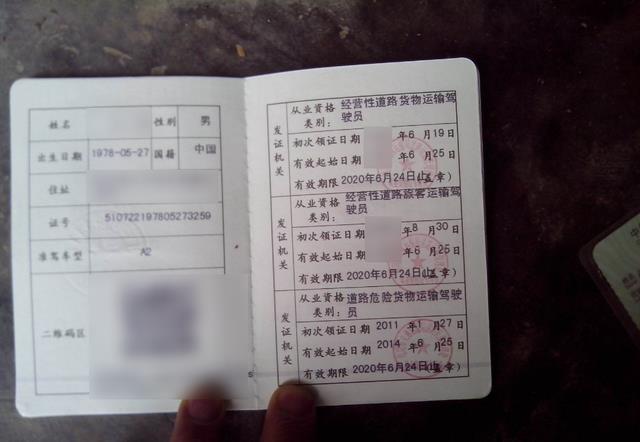 姓名 性别 男
出生日期 1978-05-27 国籍 中国
住址
证号 510722197805273259
准驾车型 A2
二维码区
发证机关
从业资格类别： 经营性道路货物运输驾
驶员
初次领证日期 年6 月19日
有效起始日期 年6 月25日
有效期限 2020年6月24日止(盖章)
发证机关
从业资格类别： 经营性道路旅客运输驾
驶员
初次领证日期 年8 月30日
有效起始日期 年6 月25日
有效期限 2020年6月24日止(盖章)
发证机关
从业资格类别： 道路危险货物运输驾驶
员
初次领证日期 2011 年1 月27日
有效起始日期 2014 年6 月25日
有效期限 2020年6月24日止(盖章)